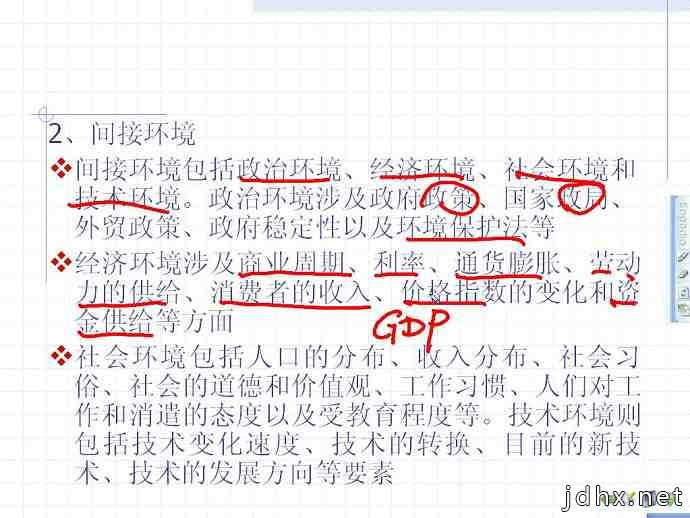 2、间接环境
间接环境包括政治环境、经济环境、社会环境和
技术环境。政治环境涉及政府政策、国家政局、
外贸政策、政府稳定性以及环境保护法等
经济环境涉及商业周期、利率、通货膨胀、劳动
力的供给、消费者的收入、价格指数的变化和资
金供给等方面
GDP
社会环境包括人口的分布、收入分布、社会习
俗、社会的道德和价值观、工作习惯、人们对工
作和消遣的态度以及受教育程度等。技术环境则
包括技术变化速度、技术的转换、目前的新技
术、技术的发展方向等要素
jdhx.net